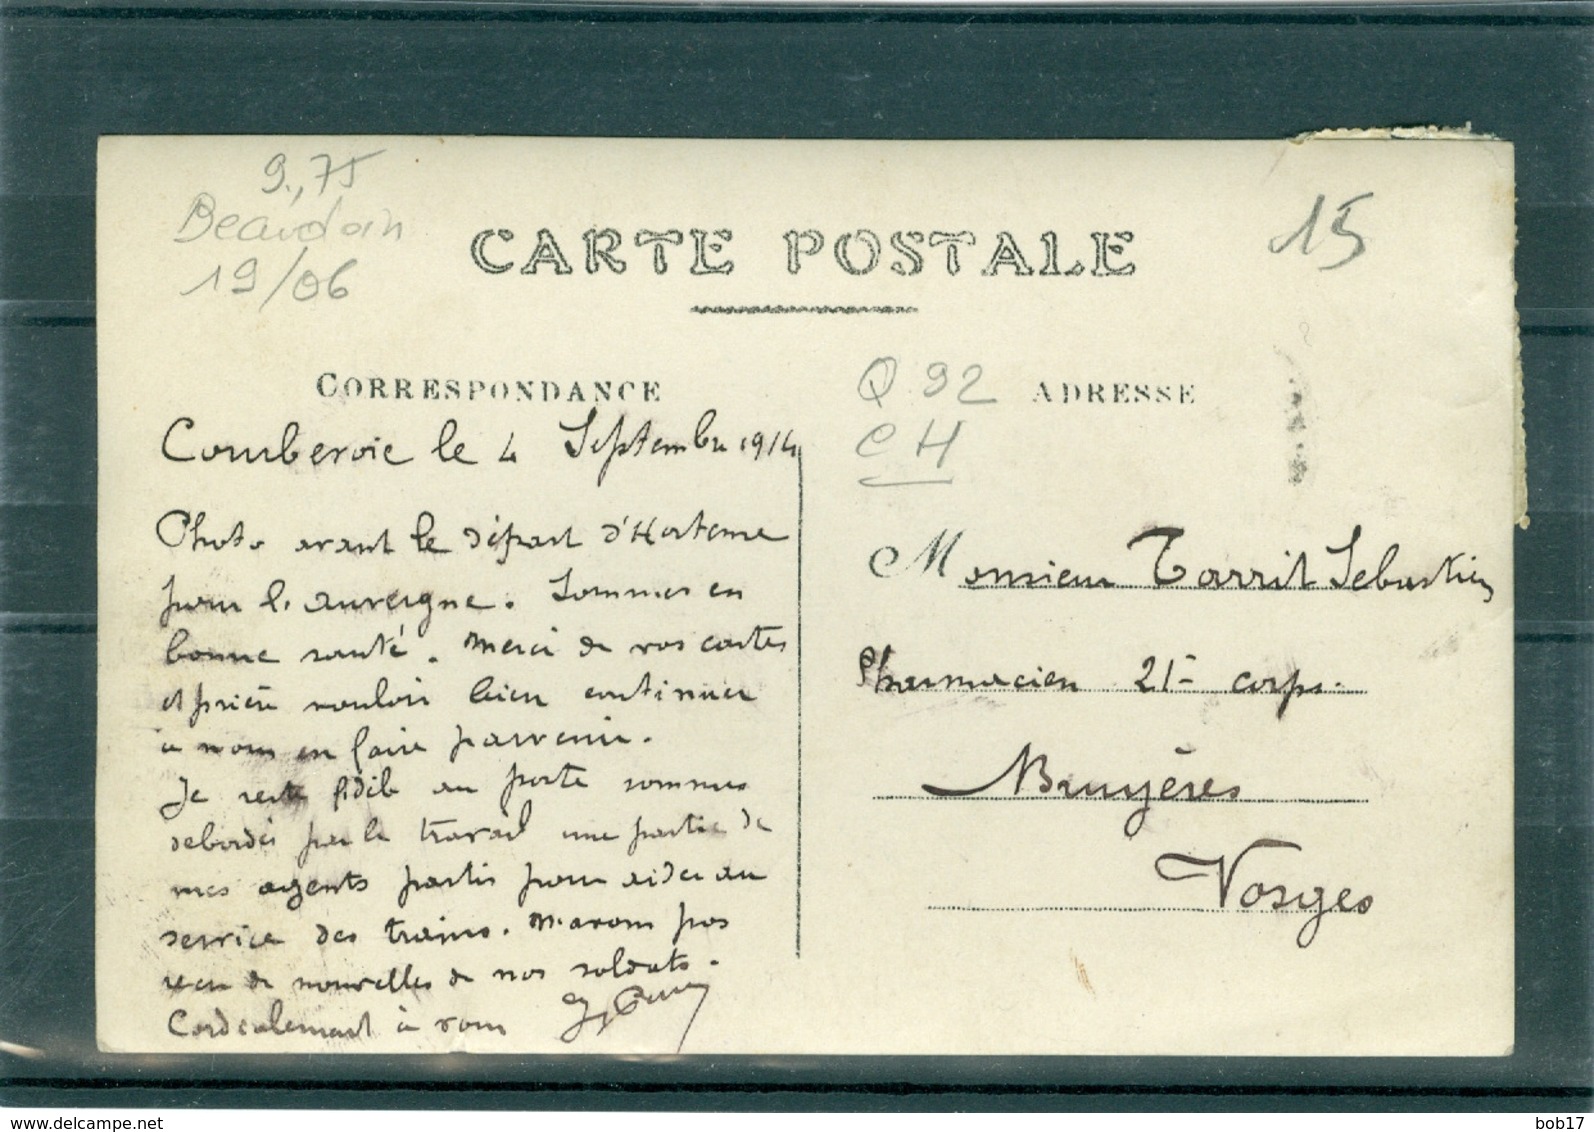 9.,75
Beaudoin
19/06
CARTE POSTALE
15
CORRESPONDANCE
Courbevoie le 4 Septembre 1914
Photo avant le départ d'Hortense
pour l'auvergne. Sommes en
bonne santé. Merci de vos cartes
et prière vouloir bien continuer
à nous en faire parvenir.
Je reste fidèle au poste sommes
debordés par le travail une partie de
mes agents partis pour aider au
service des trains. N'avons pas
reçu de nouvelles de nos soldats.
Cordialement à vous
Q 92
CH
ADRESSE
Monsieur Torrit Sebastien
Pharmacien 21e corps.
Bruyères
Vosges
www.delcampe.net
bob17